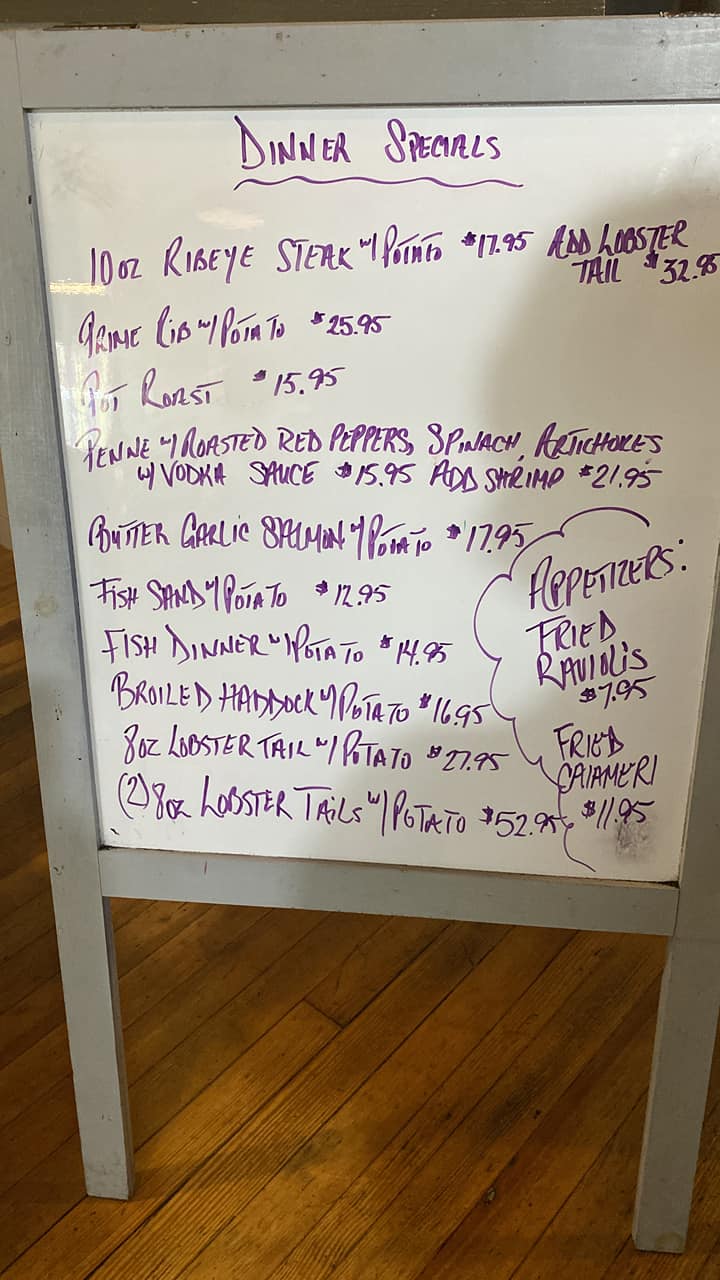 DINNER SPECIALS
10 OZ RIBEYE STEAK W/ POTATO $17.95 ADD LOBSTER
TAIL $32.95
PRIME RIB W/ POTATO $25.95
POT ROAST $15.95
PENNE W/ ROASTED RED PEPPERS, SPINACH, ARTICHOKES
W/ VODKA SAUCE $15.95 ADD SHRIMP $21.95
BUTTER GARLIC SALMON W/ POTATO $17.95
FISH SAND W/ POTATO $12.95
FISH DINNER W/ POTATO $14.95
BROILED HADDOCK W/ POTATO $16.95
8OZ LOBSTER TAIL W/ POTATO $27.95
(2) 8OZ LOBSTER TAILS W/ POTATO $52.95
APPETIZERS:
FRIED
RAVIOLIS
$7.95
FRIED
CALAMERI
$11.95